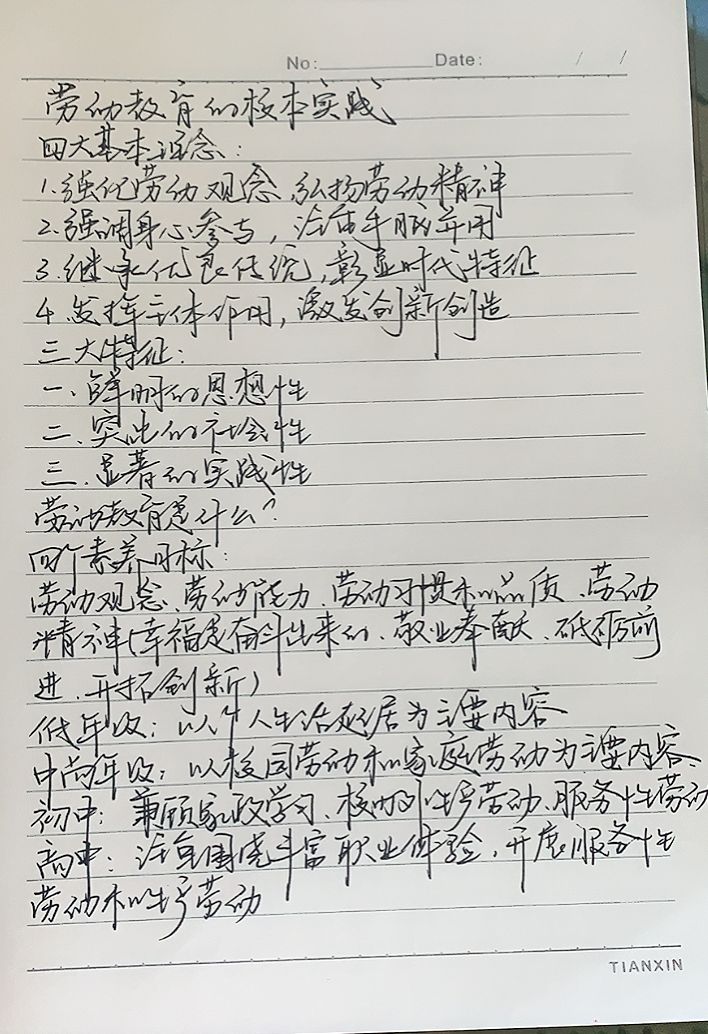 No: Date: / /
劳动教育的校本实践
四大基本理念:
1.强化劳动观念,弘扬劳动精神
2.强调身心参与,注重手脑并用
3.继承优良传统,彰显时代特征
4.发挥主体作用,激发创新创造
三大特征:
一.鲜明的思想性
二.突出的社会性
三.显著的实践性
劳动教育是什么?
四个素养目标:
劳动观念、劳动能力、劳动习惯和品质、劳动
精神(幸福是奋斗出来的、敬业奉献、砥砺前
进、开拓创新)
低年段:以个人生活起居为主要内容
中高年段:以校园劳动和家庭劳动为主要内容
初中:兼顾家政学习、校内外生产劳动、服务性劳动
高中:注重围绕丰富职业体验,开展服务性
劳动和生产劳动
TIANXIN